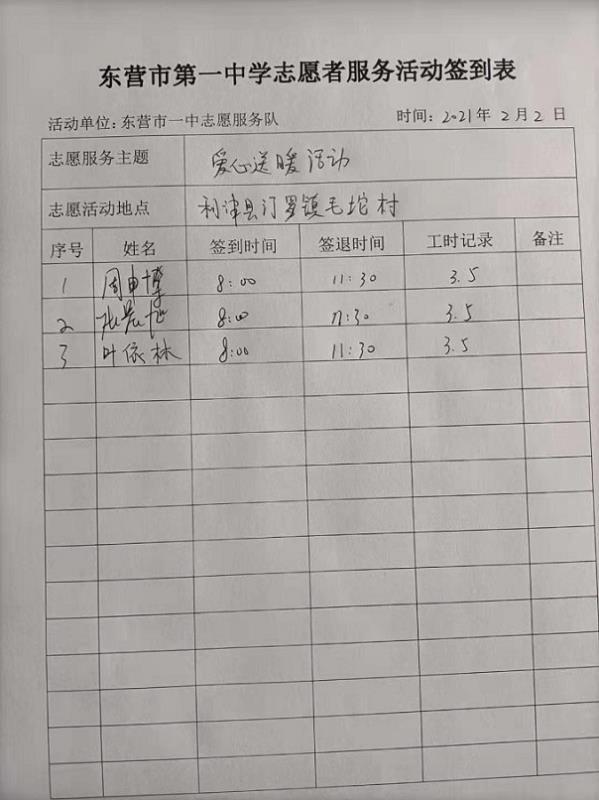 东营市第一中学志愿者服务活动签到表
活动单位:东营市一中志愿服务队 时间: 2021年 2月 2日
志愿服务主题 爱心送暖活动
志愿活动地点 利津县汀罗镇毛坨村
序号 姓名 签到时间 签退时间 工时记录 备注
1 周申博 8:00 11:30 3.5
2 8:00 11:30 3.5
3 叶依林 8:00 11:30 3.5